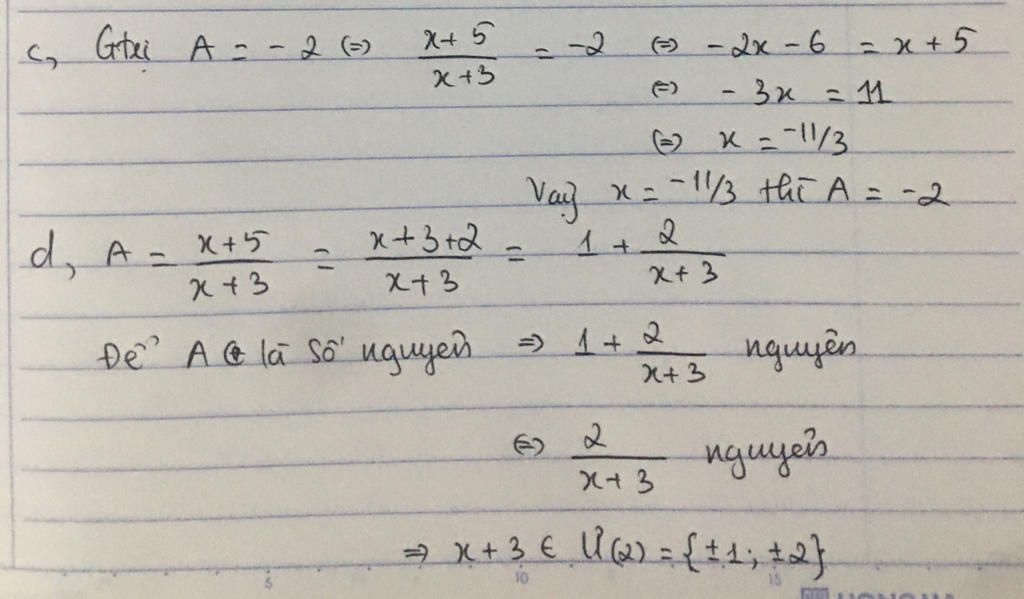 c, Gtrị A = -2 (=) x+5/x+3 = -2 (=) -2x - 6 = x + 5
(=) - 3x = 11
(=) x = -11/3
Vậy x = -11/3 thì A = -2
d, A = x+5/x+3 = x+3+2/x+3 = 1 + 2/x+3
Để A là số nguyên => 1 + 2/x+3 nguyên
(=) 2/x+3 nguyên
=> x+3 ∈ Ư(2) = {±1; ±2}
5 10 15